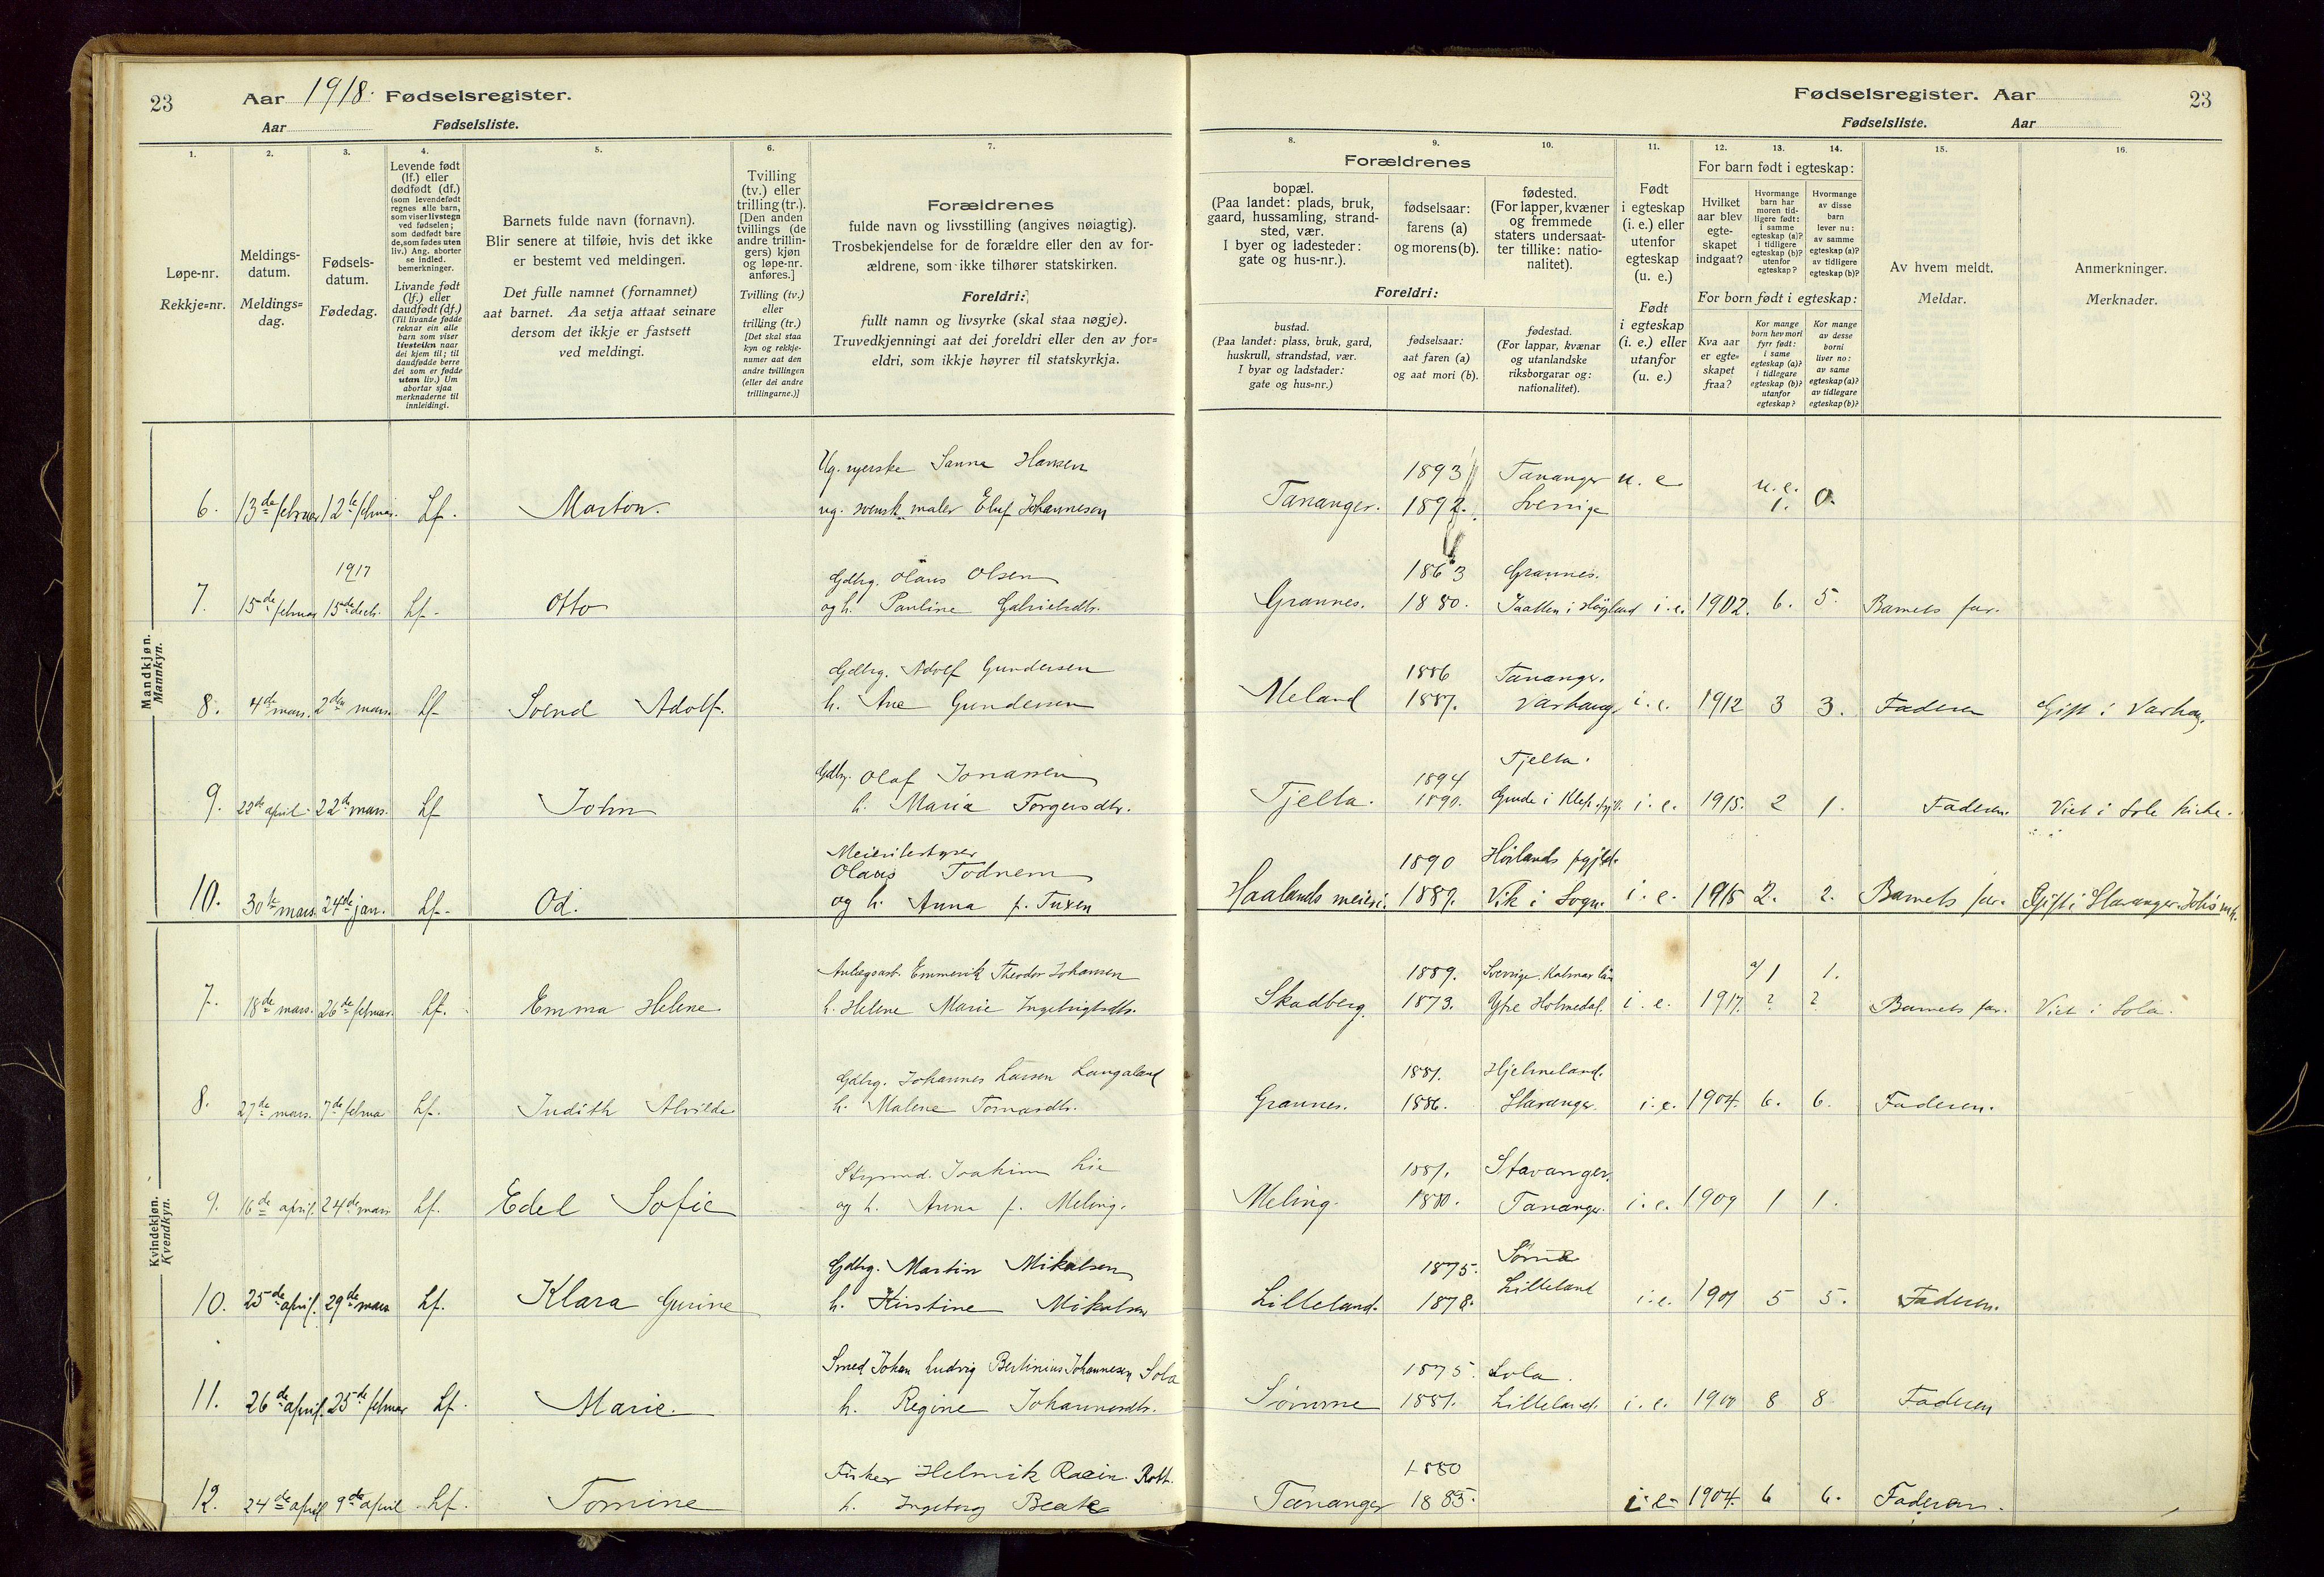 23
Aar 1918. Fødselsregister.
Aar Fødselsliste.
Fødselsregister. Aar
23
Fødselsliste. Aar
1.
Løpe-nr.
Rekkje=nr.
2.
Meldings-
datum.
Meldings=
dag.
3.
Fødsels-
datum.
Fødedag.
4.
Levende født
(lf.) eller
dødfødt (df.)
(som levendefødt
regnes alle barn,
som viser livstegn
ved fødselen;
som dødfødt bare
de, som fødes uten
liv.) Ang. aborter
se indled.
bemerkninger.
Livande født
(lf.) eller
daudfødt (df.)
(Til livande fødde
reknar ein alle
barn som viser
livsteikn naar
dei kjem til; til
daudfødde berre
dei som er fødde
utan liv.) Um
abortar sjaa
merknaderne til
innleidingi.
5.
Barnets fulde navn (fornavn).
Blir senere at tilføie, hvis det ikke
er bestemt ved meldingen.
Det fulle namnet (fornamnet)
aat barnet. Aa setja attaat seinare
dersom det ikkje er fastsett
ved meldingi.
6.
Tvilling
(tv.) eller
trilling (tr.).
[Den anden
tvillings (de
andre trillin-
gers) kjøn
og løpe-nr.
anføres.]
Tvilling (tv.)
eller
trilling (tr.)
[Det skal staa
kyn og rekkje-
numer aat den
andre tvillingen
(eller dei andre
trillingarne.)]
7.
Forældrenes
fulde navn og livsstilling (angives nøiagtig).
Trosbekjendelse for de forældre eller den av for-
ældrene, som ikke tilhører statskirken.
Foreldri:
fullt namn og livsyrke (skal staa nøgje).
Truvedkjenningi aat dei foreldri eller den av for=
eldri, som ikkje høyrer til statskyrkja.
8.
Forældrenes
bopæl.
(Paa landet: plads, bruk,
gaard, hussamling, strand-
sted, vær.
I byer og ladesteder:
gate og hus-nr.).
Foreldri:
bustad.
(Paa landet: plass, bruk, gard,
huskrull, strandstad, vær.
I byar og ladstader:
gate og hus=nr.)
9.
fødselsaar:
farens (a)
og morens (b).
fødselsaar:
aat faren (a)
og aat mori (b).
10.
fødested.
(For lapper, kvæner
og fremmede
staters undersaat-
ter tillike: natio-
nalitet).
fødestad.
(For lappar, kvænar
og utanlandske
riksborgarar og:
nationalitet).
11.
Født
i egteskap
(i. e.) eller
utenfor
egteskap
(u. e.)
Født
i egteskap
(i. e.) eller
utanfor
(u. e.)
12.
13.
14.
For barn født i egteskap:
Hvilket
aar blev
egte-
skapet
indgaat?
Hvormange
barn har
moren tid-
ligere født:
i samme
egteskap (a)?
i tidligere
egteskap (b)?
utenfor
egteskap?
Hvormange
av disse
barn
lever nu:
av samme
egteskap (a)?
av tidligere
egteskap (b)?
For born født i egteskap:
Kva aar
er egte=
skapet
fraa?
Kor mange
born hev mori
fyrr født:
i same
egteskap (a)?
i tidlegare
egteskap (b)?
utanfor
egteskap?
Kor mange
av desse
borni
liver no:
av same
egteskap (a)?
av tidlegare
egteskap (b)?
15.
Av hvem meldt.
Meldar.
16.
Anmerkninger.
Merknader.
Mandkjøn.
Mannkyn.
Ug. syerske Sanna Hansen 1893 Tananger u. e. u. e.
6. 13de februar 12te februar. Lf. Marton. ug. svensk maler Eluf Johannesen Tananger. 1892. Sverrige 1. 0.
1917 Gdbrg. Olaus Olsen 1863 Grannes.
7. 15de februar 15de decb. Lf. Otto og h. Pauline Gabrielsdtr. Grannes. 1880. Jaatten i Høyland i. e. 1902. 6. 5. Barnets far.
Gdbrg. Adolf Gundersen 1886 Tananger.
8. 4de mars. 2den mars. Lf. Svend Adolf. h. Ane Gundersen Meland 1887. Varhaug i. e. 1912 3 3. Faderen Gift i Varhaug.
Gdbrg. Olaf Jonassen 1894 Tjelta.
9. 22de april 22de mars. Lf John h. Maria Torgersdtr. Tjelta. 1890. Grude i Klep i. e. 1915. 2 1. Faderen. Viet i Sole kirke.
Meieribestyrer
Olaus Todnem 1890 Høilands pgjeld.
10. 30te mars. 24de jan. Lf. Od. og h. Anna f. Tuxen Haalands meieri. 1889. Vik i Sogn. i. e. 1915 2. 2. Barnets far. Gift i Stavanger
Kvindekjøn.
Kvendkyn.
Anlægsarb. Emmerik Theodor Johansen 1889. Sverrige. Kalmar län a/ 1 1.
7. 18de mars. 26de februar. Lf. Emma Helene. h. Helene Marie Ingebrigtsdtr. Skadberg. 1873. Ytre Holmedal. i. e. 1917. ? ? Barnets far. Viet i Sola.
Gdbrg. Johannes Larsen Langaland 1881. Hjelmeland.
8. 27de mars. 7de februa Lf. Judith Alvilde h. Malene Tornasdtr. Grannes. 1886. Stavanger. i. e. 1904. 6. 6. Faderen.
Styrmd. Joakim Lie 1881. Stavanger.
9. 16de april. 24de mars Lf. Edel Sofie og h. Anna f. Meling. Meling. 1880. Tananger. i. e. 1909 1 1.
Gdbrg. Martin Mikalsen 1875. Sømme
10. 25de april. 29de mars Lf. Klara Gurine h. Kirstine Mikalsen Lilleland. 1878. Lilleland i. e. 1901 5 5. Faderen.
Smed Johan Ludvig Bertinius Johannesen Sola 1875. Sola.
11. 26de april. 25de februar Lf. Marie. h. Regine Johannesdtr. Sømme 1881. Lilleland. i. e. 1900 8 8 Faderen
Fisker Helmik Racin. Rott. 1880
12. 24de april 9de april Lf. Tomine h. Ingeborg Beate Tananger 1885. i. e. 1904. 6 6. Faderen.